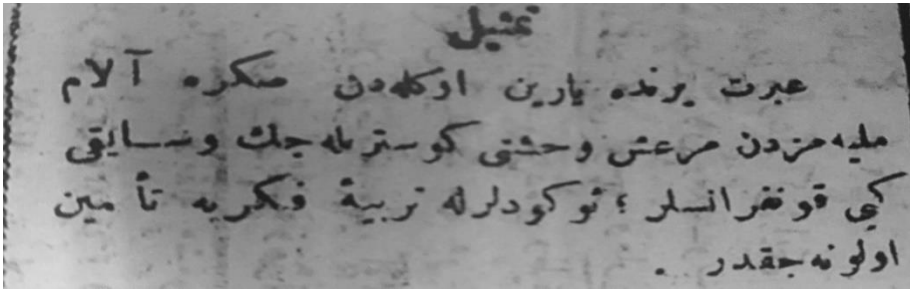 تمثيل
عبرت يرنده يارين اوكله‌دن صكره آلام
مليه‌مزدن مرعش وحشتى كوستريله‌جك و سابقى
كبى قونفرانسلر ؛ ئوكودلرله تربيهٔ فكريه تأمين
اولونه‌جقدر .